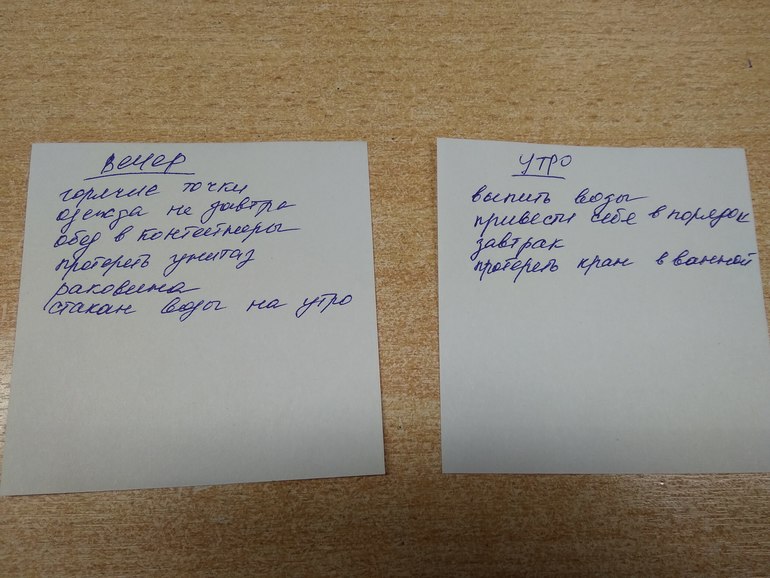 Вечер
горячие точки
одежда на завтра
обед в контейнеры
протереть унитаз
раковина
стакан воды на утро
УТРО
выпить воды
привести себя в порядок
завтрак
протереть кран в ванной